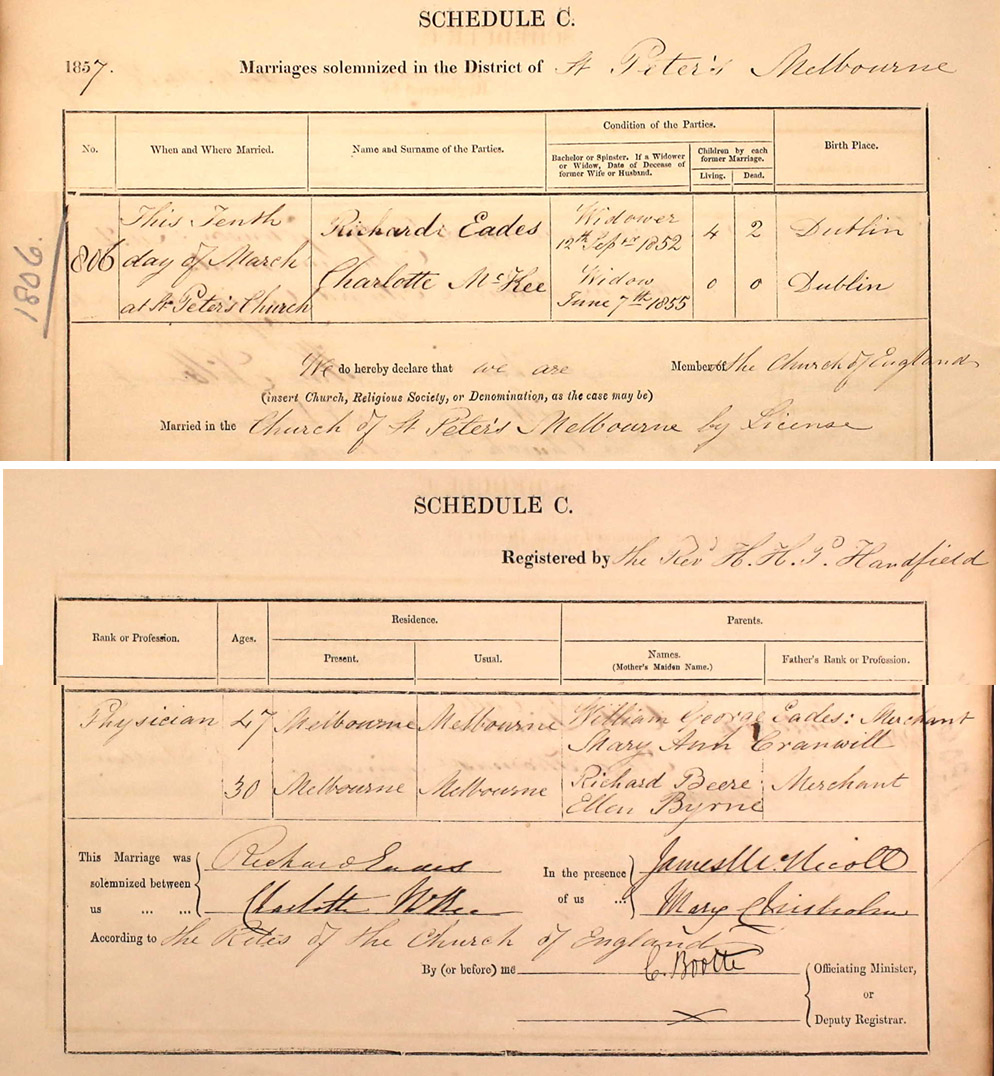 SCHEDULE C.
1857. Marriages solemnized in the District of St Peter's Melbourne
Condition of the Parties.
No. When and Where Married. Name and Surname of the Parties. Birth Place.
Bachelor or Spinster. If a Widower or Widow, Date of Decease of former Wife or Husband.
Children by each former Marriage.
Living. Dead.
1806.
806
This Tenth day of March at St Peter's Church
Richard Eades Widower 12th Sepr 1852 4 2 Dublin
Charlotte McKee Widow June 7th 1855 0 0 Dublin
We do hereby declare that we are Member of the Church of England
(insert Church, Religious Society, or Denomination, as the case may be)
Married in the Church of St Peter's Melbourne by License
SCHEDULE C.
Registered by the Revd H. H. P. Handfield
Rank or Profession. Ages. Residence. Parents.
Present. Usual. Names. (Mother's Maiden Name.) Father's Rank or Profession.
Physician 47 Melbourne Melbourne William George Eades: Merchant
Mary Ann Cranwill
30 Melbourne Melbourne Richard Beere Merchant
Ellen Byrne
This Marriage was solemnized between us ... ...
Richard Eades
Charlotte McKee
In the presence of us ...
James McNicoll
Mary Chisholm
According to the Rites of the Church of England
By (or before) me C. Booth
Officiating Minister, or Deputy Registrar.